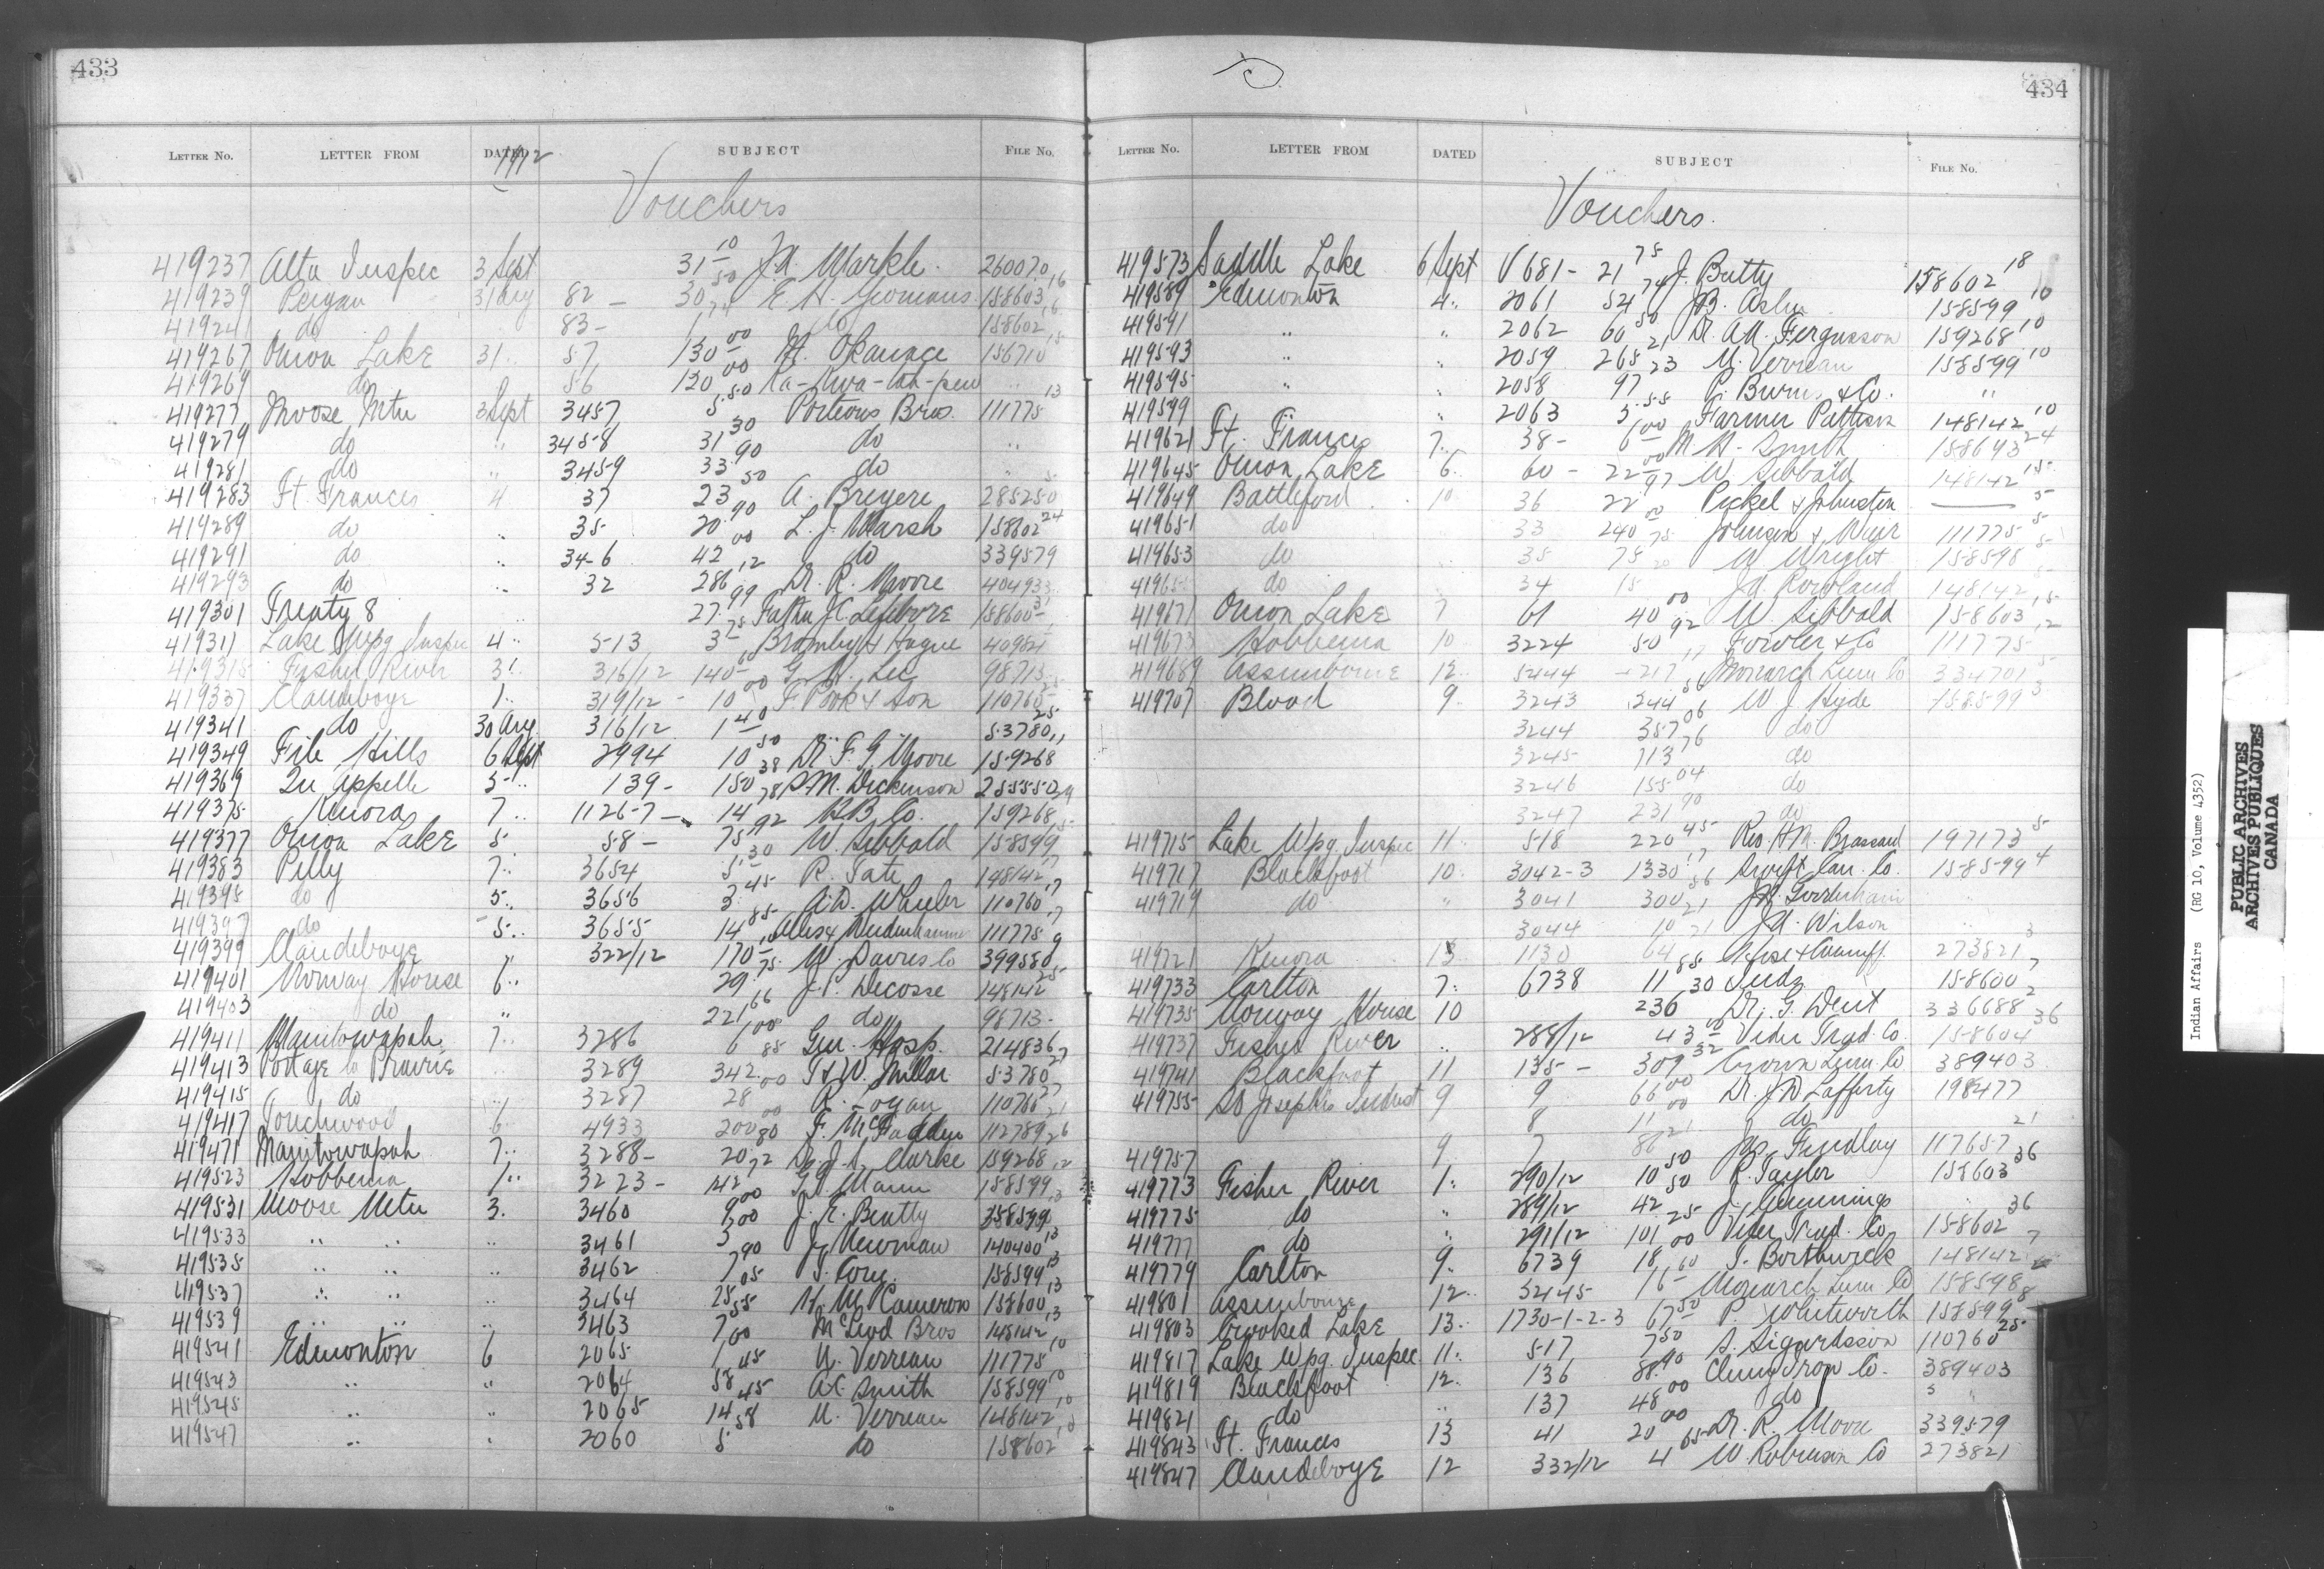 433
1912
LETTER NO. LETTER FROM DATED SUBJECT FILE NO.
Vouchers
419237 Alta Inspec 3 Sept 31 10 J.A. Markle. 260070
419239 Peigan 31 Aug 82 - 30 50 E. H. Yeomans 158603 16
419241 do 83 - do 158602
419267 Onion Lake 31 " 57 130 00 M. Okanace 156710 15
419269 do 56 120 00 Ka-Kwa-tah-pew "
419277 Moose Mtn 3 Sept 3457 5.50 Porteous Bros. 111775 13
419279 do " 3458 31 30 do "
419281 do " 3459 33 90 do "
419283 Ft. Frances 4 37 23 50 A. Breyere 285250
419289 do " 35 20 90 L. J. Marsh 158602 24
419291 do " 34-6 42 00 do 339579
419293 do " 32 286 12 Dr. R. Moore 404933
419301 Treaty 8 27 99 J.C. Lefebvre 158600
419311 Lake Wpg Inspec 4 " 513 3 75 Bromby & Hague
419315 Fisher River 3 " 316/12 140 G. H. Lee 98713
419337 Clandeboye 1 " 319/12 - 10 00 F. Pook & Son 110760
419341 do 30 Aug 316/12 1 40 " " 53780 25
419349 File Hills 6 Sept 2994 10 50 Dr. F. G. Moore 159268 11
419369 Qu Appelle 5 " 139 - 150 38 S.M. Dickenson 255550
419375 Kenora 7 " 1126-7 - 14 78 H B Co. 159268
419377 Onion Lake 5 58 - 75 92 W. Sibbald 158599
419383 Pelly 7 " 3654 5 30 R. Tate 148142 17
419395 do 5 " 3656 3 45 A.D. Wheeler 110760 17
419397 do 5 " 3655 14 85 111775 17
419399 Clandeboye " 322/12 170 10 W. Davis Co 399580 9
419401 Norway House 6 " 29 75 J.P. Decosse 148142 25
419403 do " 221 66 do 98713
419411 Manitowapah 7 " 3286 6 00 Gen. Hosp. 214836
419413 Portage la Prairie " 3289 342 85 T & W. Millar 53780 27
419415 do " 3287 28 00 R. Logan 110760 27
419417 Touchwood 6 4933 200 00 F. McFadden 112789 21
419471 Manitowapah 7 " 3288 - 20 80 Clarke 159268 26
419523 Hobbema 1 " 3223 - 142 72 G. Mann 158599 12
419531 Moose Mtn 3. 3460 9 00 J. E. Beatty 158599 13
419533 " " " 3461 5 00 J. Newman 140400 13
419535 " " " 3462 7 90 T. Cory 158599 13
419537 " " " 3464 25 05 H. M. Cameron 158600 13
419539 " " " 3463 7 55 McLeod Bros 148142 13
419541 Edmonton 6 2065 1 00 U. Verreau 111775 10
419543 " " 2064 58 45 A.C. Smith 158599 10
419545 " " 2065 14 45 U. Verreau 148142 10
419547 " " 2060 5 58 do 158602 10
434
LETTER NO. LETTER FROM DATED SUBJECT FILE NO.
Vouchers.
419573 Saddle Lake 6 Sept V 681 - 21 75 J. Batty 158602 18
419589 Edmonton 4 " 2061 54 74 158599 10
419591 " " 2062 60 50 Dr. A.H. Fergusson 159268 10
419593 " " 2059 265 21 U. Verreau 158599 10
419595 " " 2058 97 23 P. Burns & Co. "
419599 " 2063 5 55 Farmer Patteson 148142 10
419621 Ft. Frances 7. 38 - 6 00 M H. Smith 158693 24
419645 Onion Lake 6. 60 - 22 00 W. Sibbald 148142 15
419649 Battleford 10 36 22 97 Pickel & Johnston — 5
419651 do 33 240 00 Johnson & Muir 111775 5
419653 do 35 75 75 W Wright 158598 5
419655 do 34 15 20 J.A. Rowland 148142 5
419671 Onion Lake 7 61 40 00 W. Sibbald 158603 15
419673 Hobbema 10 3224 50 92 Fowler & Co 111775 12
419689 Assiniboine 12 5444 217 17 Monarch Lum Co 334701 5
419707 Blood 9 3243 244 56 W J Hyde 158599 3
3244 357 06 do
3245 113 76 do
3246 155 04 do
3247 231 90 do
419715 Lake Wpg. Inspec 11. 518 220 45 Rev. H.M. Brassard 197173 5
419717 Blackfoot 10. 3042-3 1330 17 Swift Can. Co. 158599 4
419719 do " 3041 300 56 J.H. Gooderham "
3044 10 21 J.A. Wilson " 3
419721 Kenora 13 1130 64 21 273821
419733 Carlton 7. 6738 11 85 158600 7
419735 Norway House 10 236 30 Dr. G. Dent 336688 2
419737 Fisher River " 288/12 43 10 Vider Trad. Co. 158604 36
419741 Blackfoot 11 135 - 309 32 Crown Lum. Co 389403
419755 St Josephs Indust 9 9 66 00 Dr. J.D. Lafferty 198477
8 11 00 do
419757 9 7 86 21 Jas Findlay 117657 21
419773 Fisher River 1. 290/12 10 50 R. Taylor 158603 36
419775 do " 289/12 42 50 J. Cummings "
419777 do " 291/12 101 25 Vider Trad. Co 158602 36
419779 Carlton 9. 6739 18 00 T. Borthwick 148142 7
419801 Assiniboine 12. 5445 16 60 Monarch Lum Co 158598
419803 Crooked Lake 13. 1730-1-2-3 67 50 P. Whitworth 158599 8
419817 Lake Wpg. Inspec. 11. 517 7 50 S. Sigurdsson 110760 25
419819 Blackfoot 12. 136 88 90 Cluny Trop Co. 389403
419821 do " 137 48 00 do "
419843 Ft. Frances 13 41 20 00 Dr. R. Moore 339579
419847 Clandeboye 12 332/12 4 65 W. Robinson Co 273821
Indian Affairs (RG 10, Volume 4352)
PUBLIC ARCHIVES
ARCHIVES PUBLIQUES
CANADA